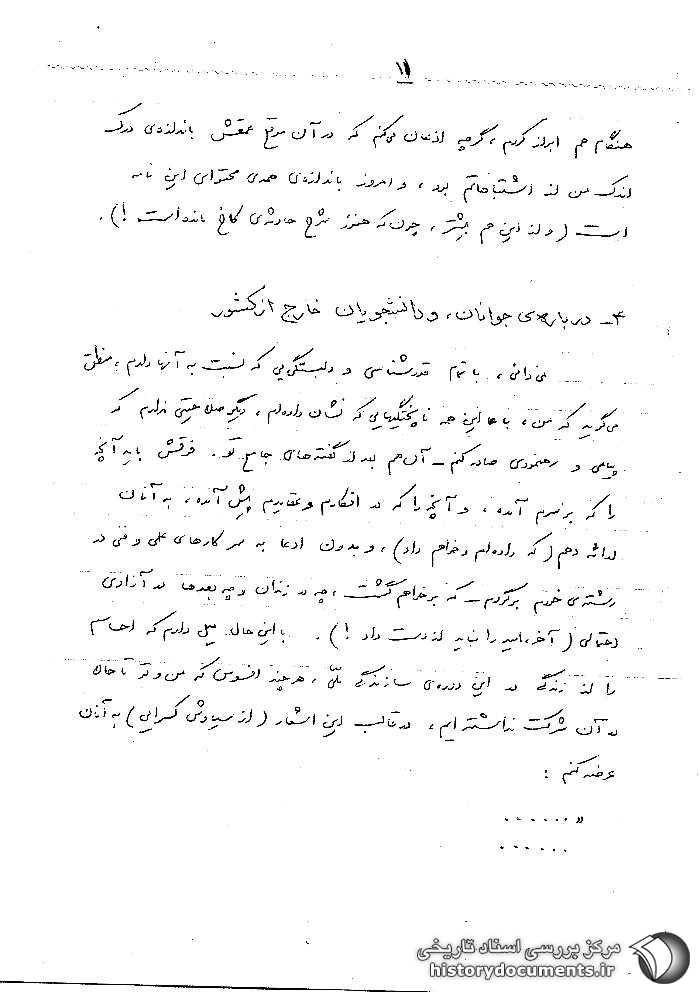 ۱۱
هنگام هم ابراز کردم، گرچه اذعان می‌کنم که در آن موقع عمقش باندازه‌ی درک
اندک من از اشتباهاتم بود، و امروز باندازه‌ی همه‌ی محتوای این نامه
است (و از این هم بیشتر، چون که هنوز شرح حادثه‌ی کاخ مانده است!).
۴ـ درباره‌ی جوانان، و دانشجویان خارج از کشور
می‌دانی، با تمام قدرشناسی و دلبستگی‌یی که نسبت به آنها دارم، منطق
می‌گوید که من، با همه‌ی این همه ناپختگیهایی که نشان داده‌ام، دیگر صلاحیتی ندارم که
پیامی و رهنمودی صادر کنم ـ آن هم بعد از گفته‌های جامع تو. فوقش باید آنچه
را که بر سرم آمده، و آنچه را که در افکارم و عقایدم پیش آمده، به آنان
ارائه دهم (که داده‌ام و خواهم داد)، و بدون ادعا به سر کارهای علمی و فنی در
رشته‌ی خودم برگردم ـ که برخواهم گشت، چه در زندان و چه بعدها در آزادی
احتمالی (آخر، امید را نباید از دست داد!). با این حال میل دارم که احساسم
را از زندگی در این دوره‌ی سازندگی ملّی، هر چند افسوس که من و تو تا حال
در آن شرکت نداشته ایم، در قالب این اشعار (از سیاوش کسرایی) به آنان
عرضه کنم:
" . . . . . .
. . . . . .
مرکز بررسی اسناد تاریخی
historydocuments.ir